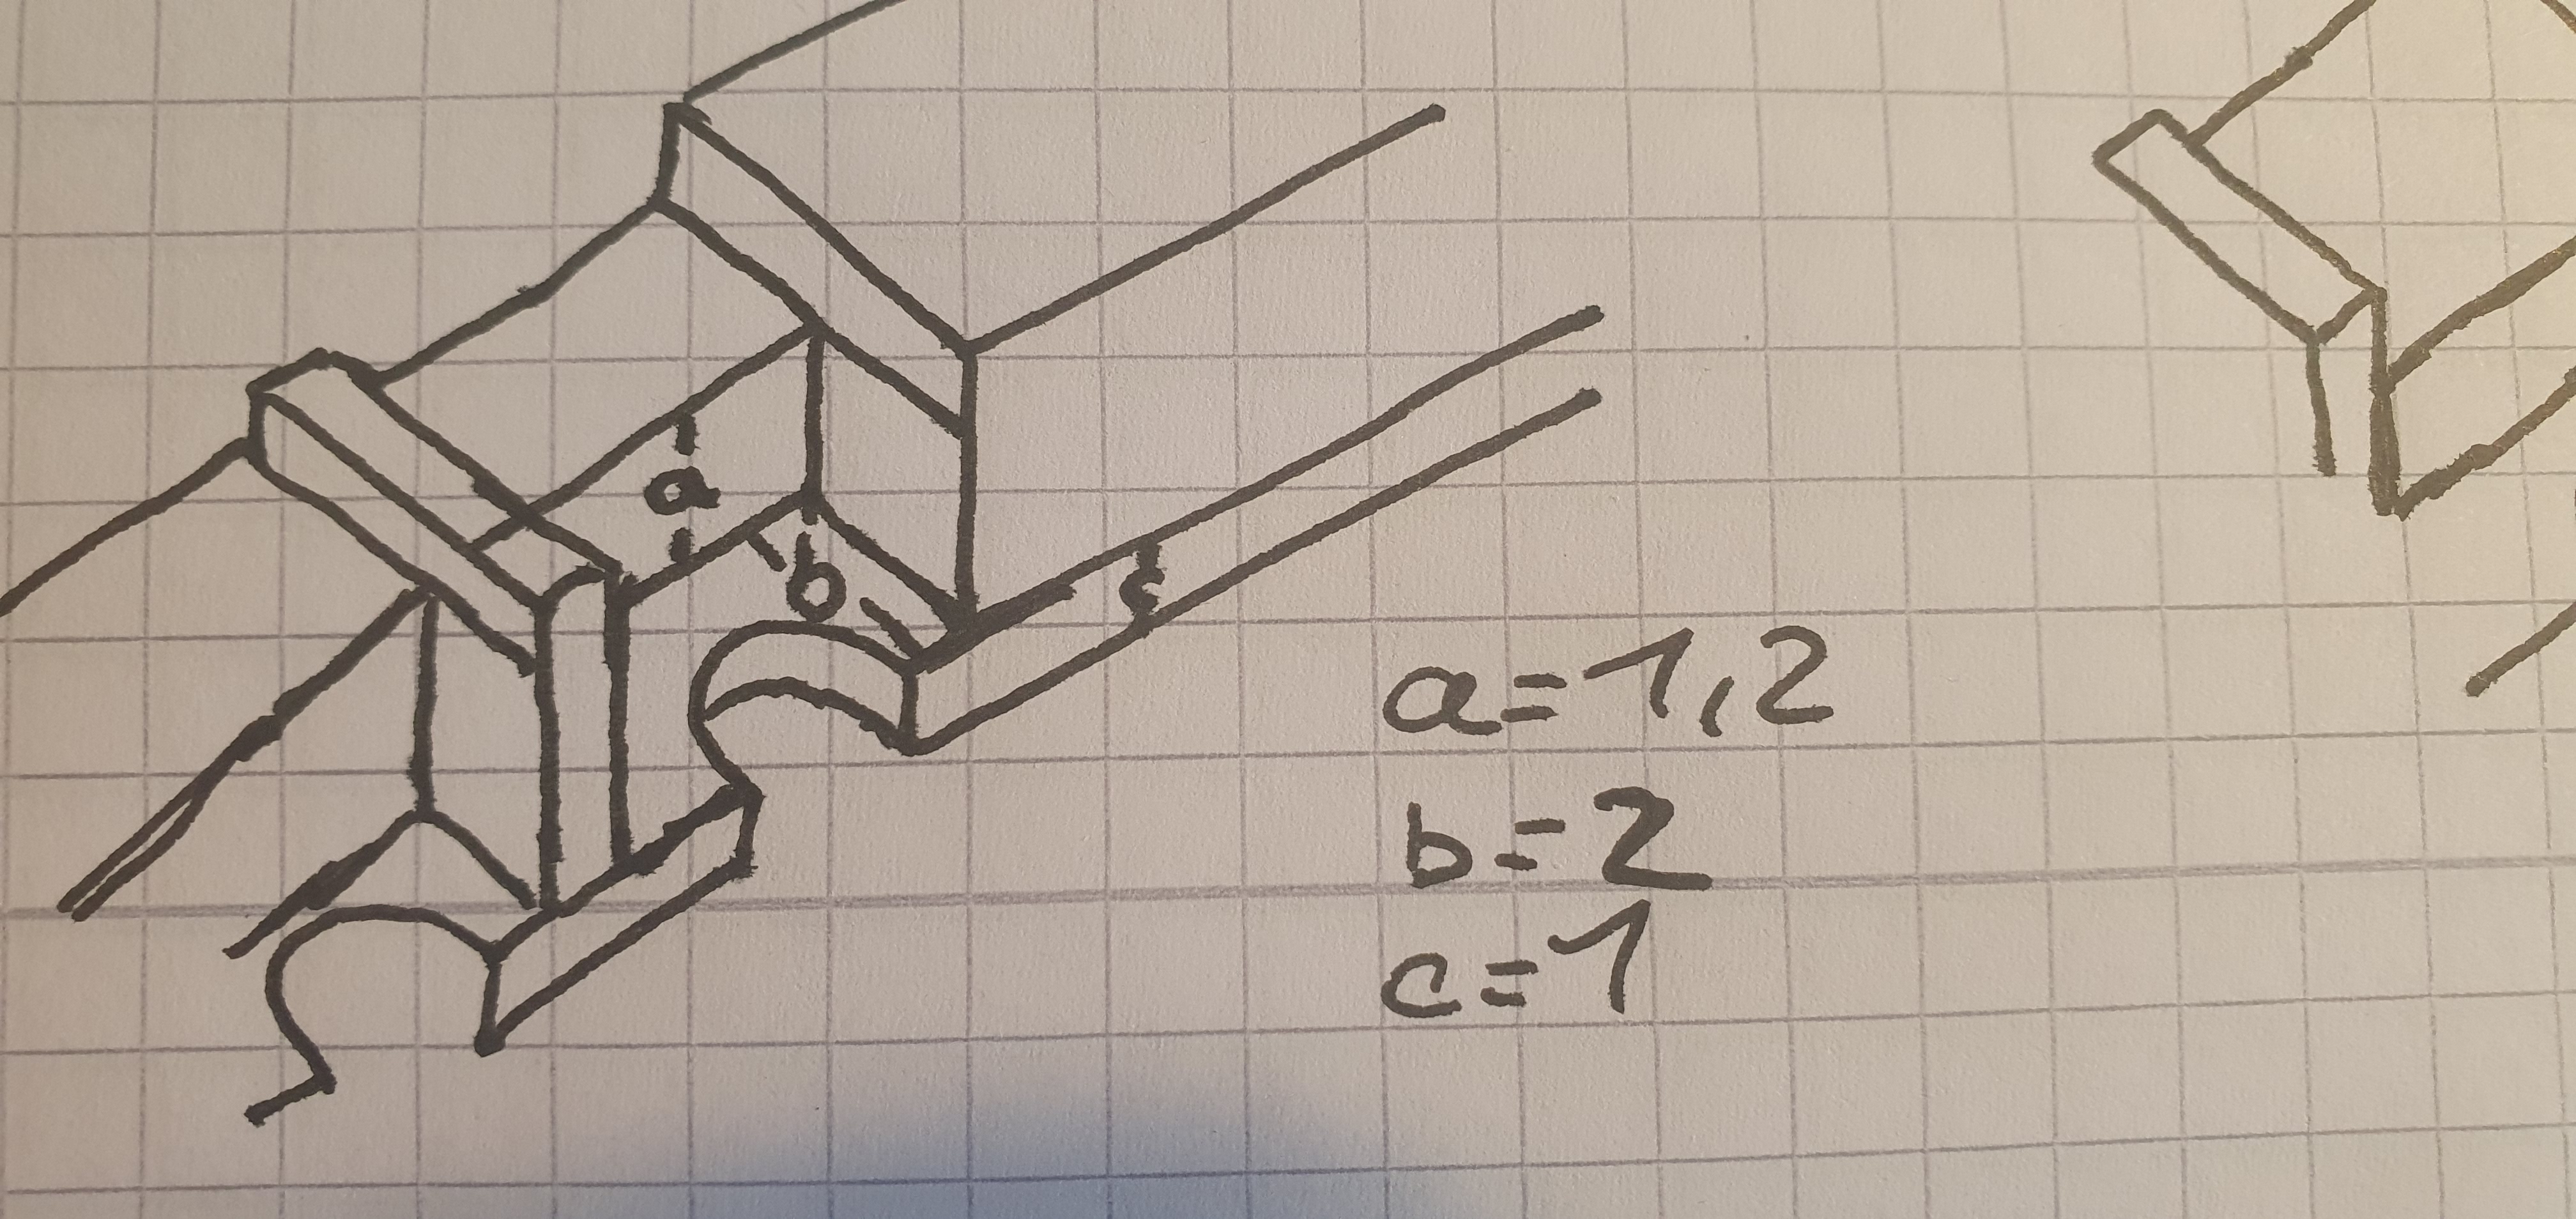 a
b
c
a=1,2
b=2
c=1